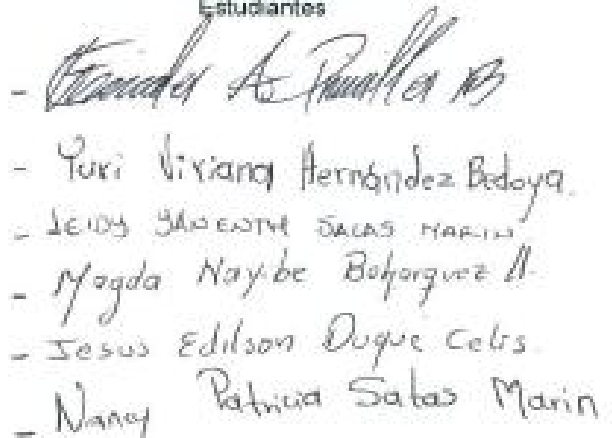 Estudiantes
- A
- Yuri Viviana Hernández Bedoya.
- LEIDY SALAS MARIN
- Magda Nayibe Bohorquez
- Jesus Edilson Duque Celis.
- Nancy Patricia Salas Marin